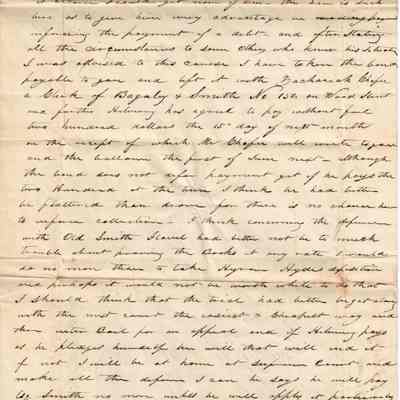 as to give him every advantage in
enforcing the payment of a debt and after stating
all the circumstances to some others who knew his
I was advised to this course I have taken the bond
payable to you and left it with Zachariah
a Clerk of Bagaly & Smith No 152 on Wood Street
and further Helmsing has agreed to pay without fail
two hundred dollars the 15th day of next month
on the receipt of which Mr will write to you
and the ballance the first of June next - although
the bond does not defer payment yet if he pays the
two Hundred at the time I think he had better
be flattered than drove for there is no chance
to enforce collection - I think concerning the defence
with Old Smith had better not be to much
trouble about proving the Books at any rate I would
do no more than to take Hyram Hydes
and perhaps it would not be worth while to do that
I should think that the trial had better be got along
with the next court the easiest & Cheapest way and
then enter Bail for an appeal and if Helmsing pays
as he pledges himself he will that will end it
if not I will be at home at Supreme Court and
make all the defence I can he says he will pay
Smith no more until he will apply it